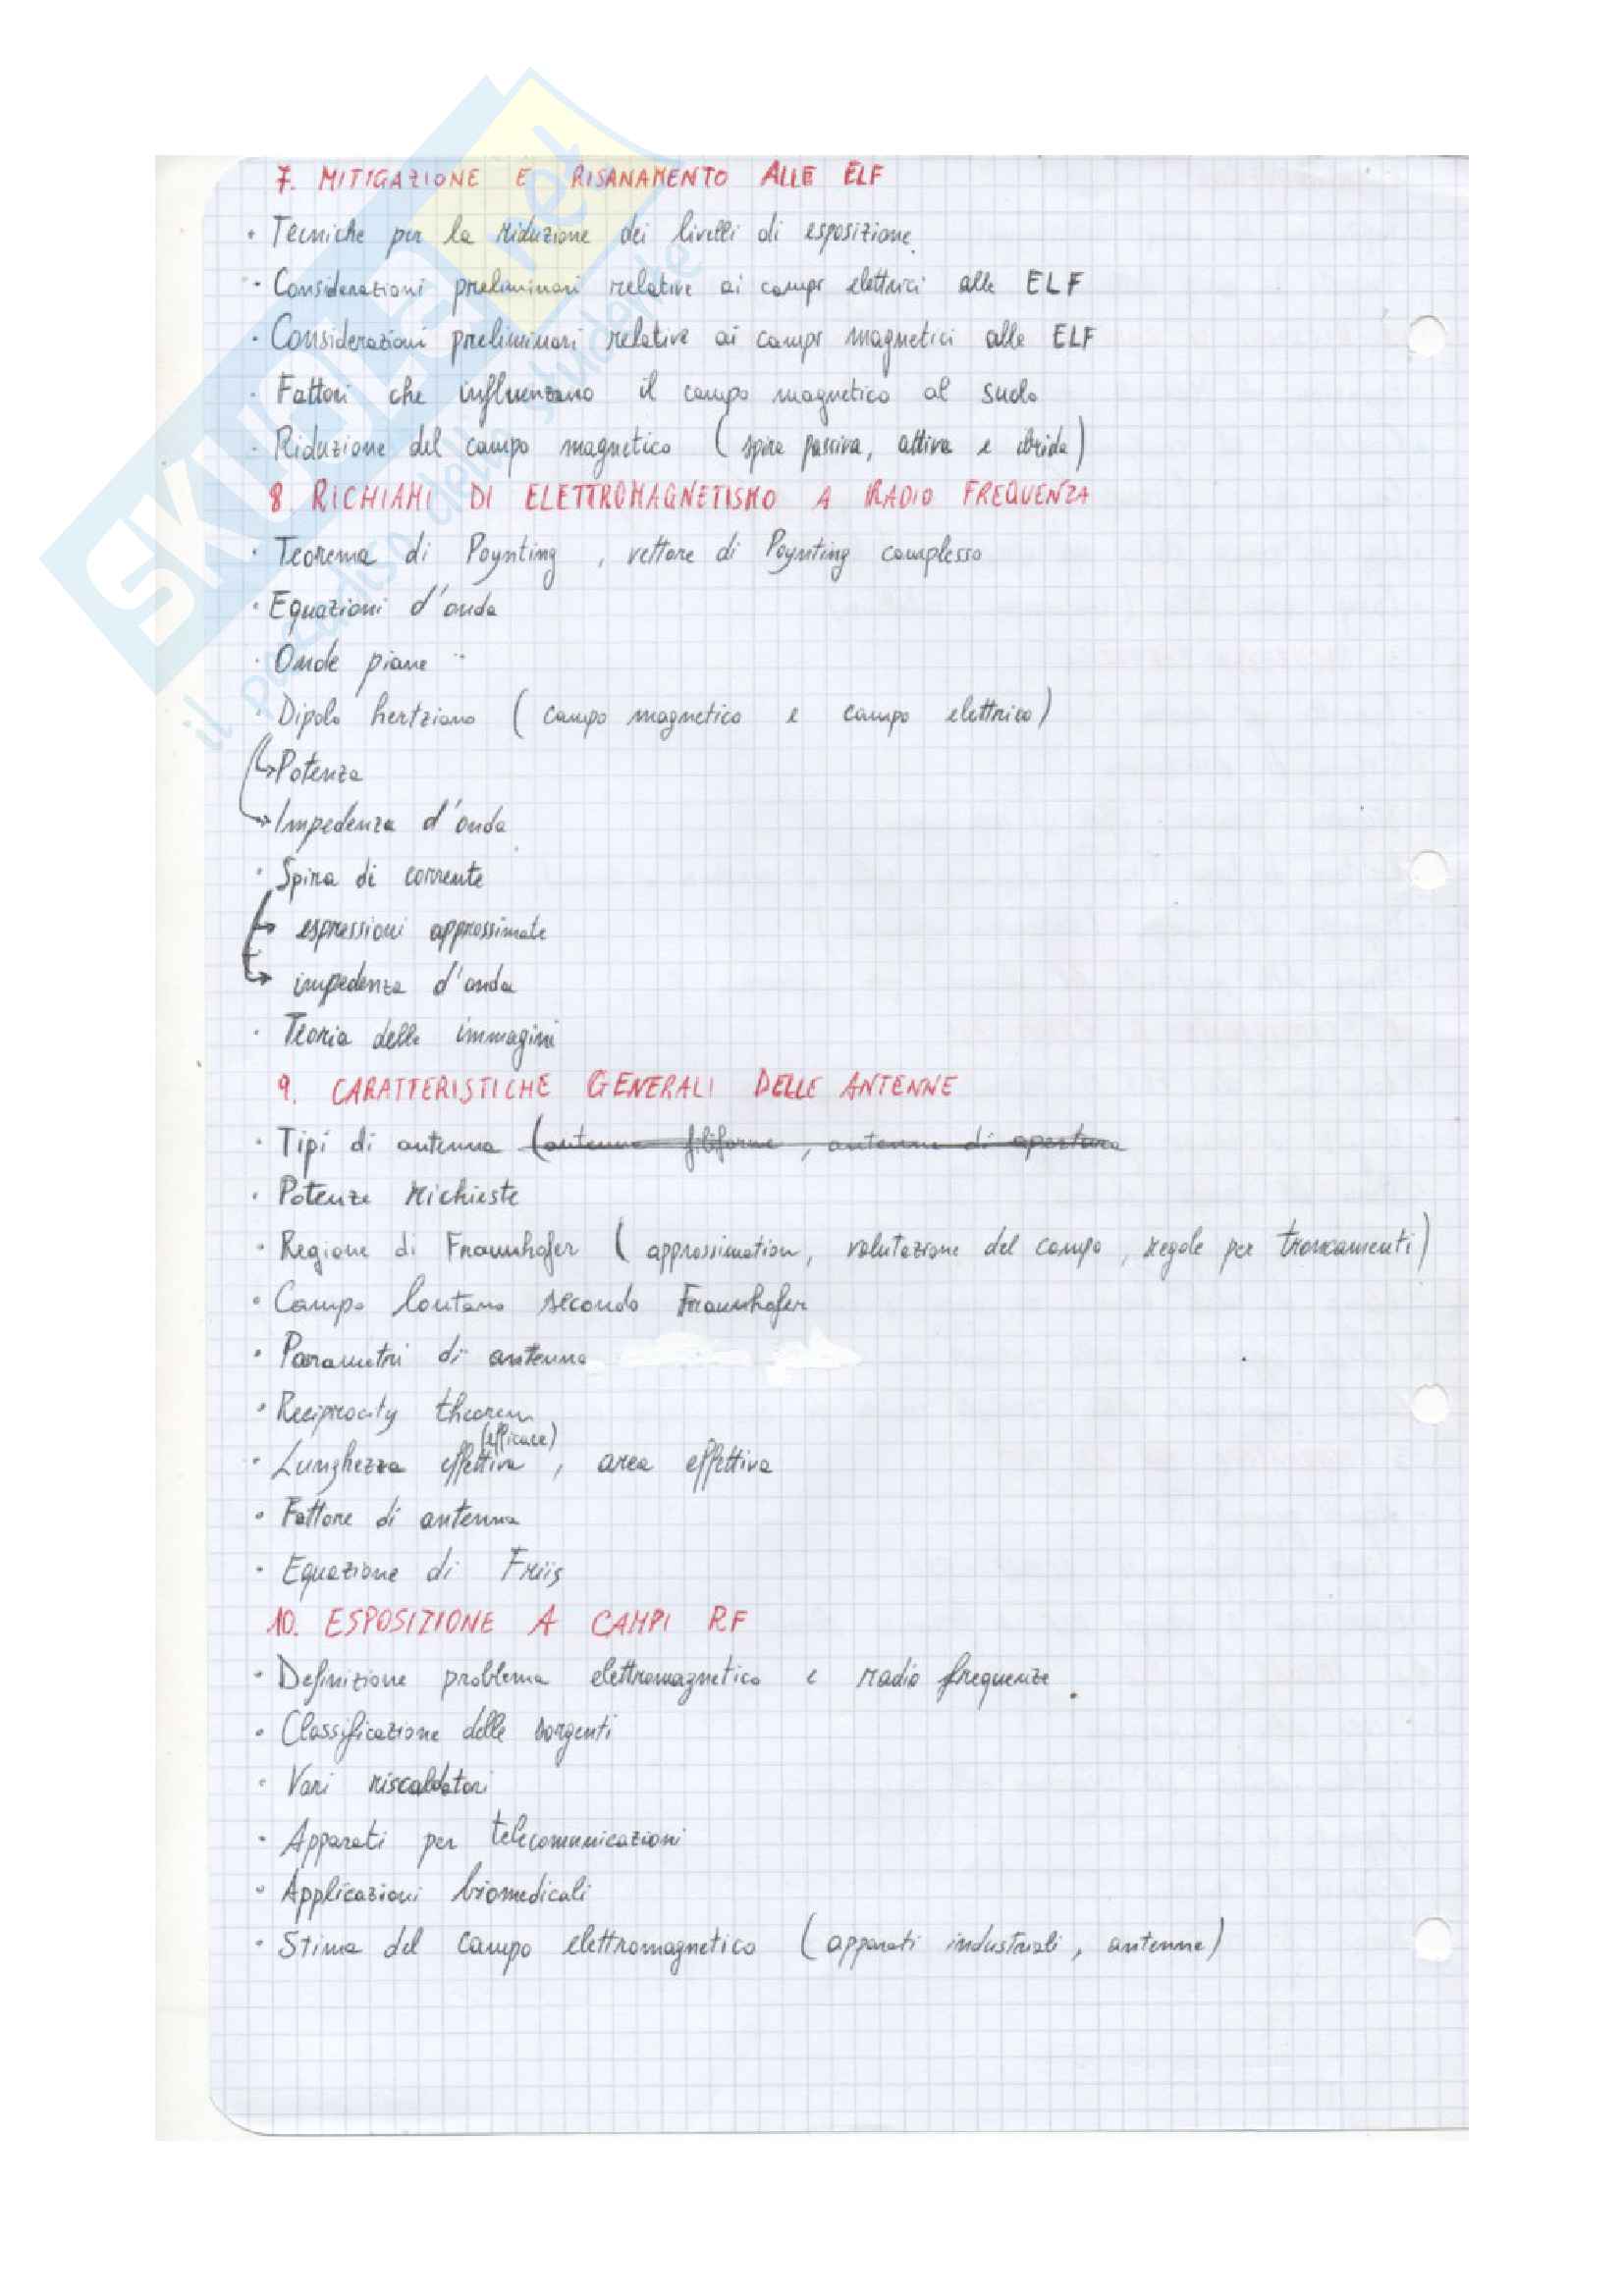 7. MITIGAZIONE E RISANAMENTO ALLE ELF
• Tecniche per la riduzione dei livelli di esposizione.
• Considerazioni preliminari relative ai campi elettrici alle ELF
• Considerazioni preliminari relative ai campi magnetici alle ELF
• Fattori che influenzano il campo magnetico al suolo
• Riduzione del campo magnetico (spira passiva, attiva e ibrida)
8. RICHIAMI DI ELETTROMAGNETISMO A RADIO FREQUENZA
• Teorema di Poynting, vettore di Poynting complesso
• Equazioni d'onda
• Onde piane
• Dipolo hertziano (campo magnetico e campo elettrico)
↳ Potenza
↳ Impedenza d'onda
• Spira di corrente
↳ espressioni approssimate
↳ impedenza d'onda
• Teoria delle immagini
9. CARATTERISTICHE GENERALI DELLE ANTENNE
• Tipi di antenna (antenne filiforme, antenne di apertura
• Potenze richieste
• Regione di Fraunhofer (approssimation, valutazione del campo, regole per troncamenti)
• Campo lontano secondo Fraunhofer
• Parametri di antenna
• Reciprocity theorem
(efficace)
• Lunghezza effettiva, area effettiva
• Fattore di antenna
• Equazione di Friis
10. ESPOSIZIONE A CAMPI RF
• Definizione problema elettromagnetico e radio frequenze.
• Classificazione delle sorgenti
• Vari riscaldatori
• Apparati per telecomunicazioni
• Applicazioni biomedicali
• Stima del campo elettromagnetico (apparati industriali, antenne)
SKUOLA.net
il paradiso dello studente